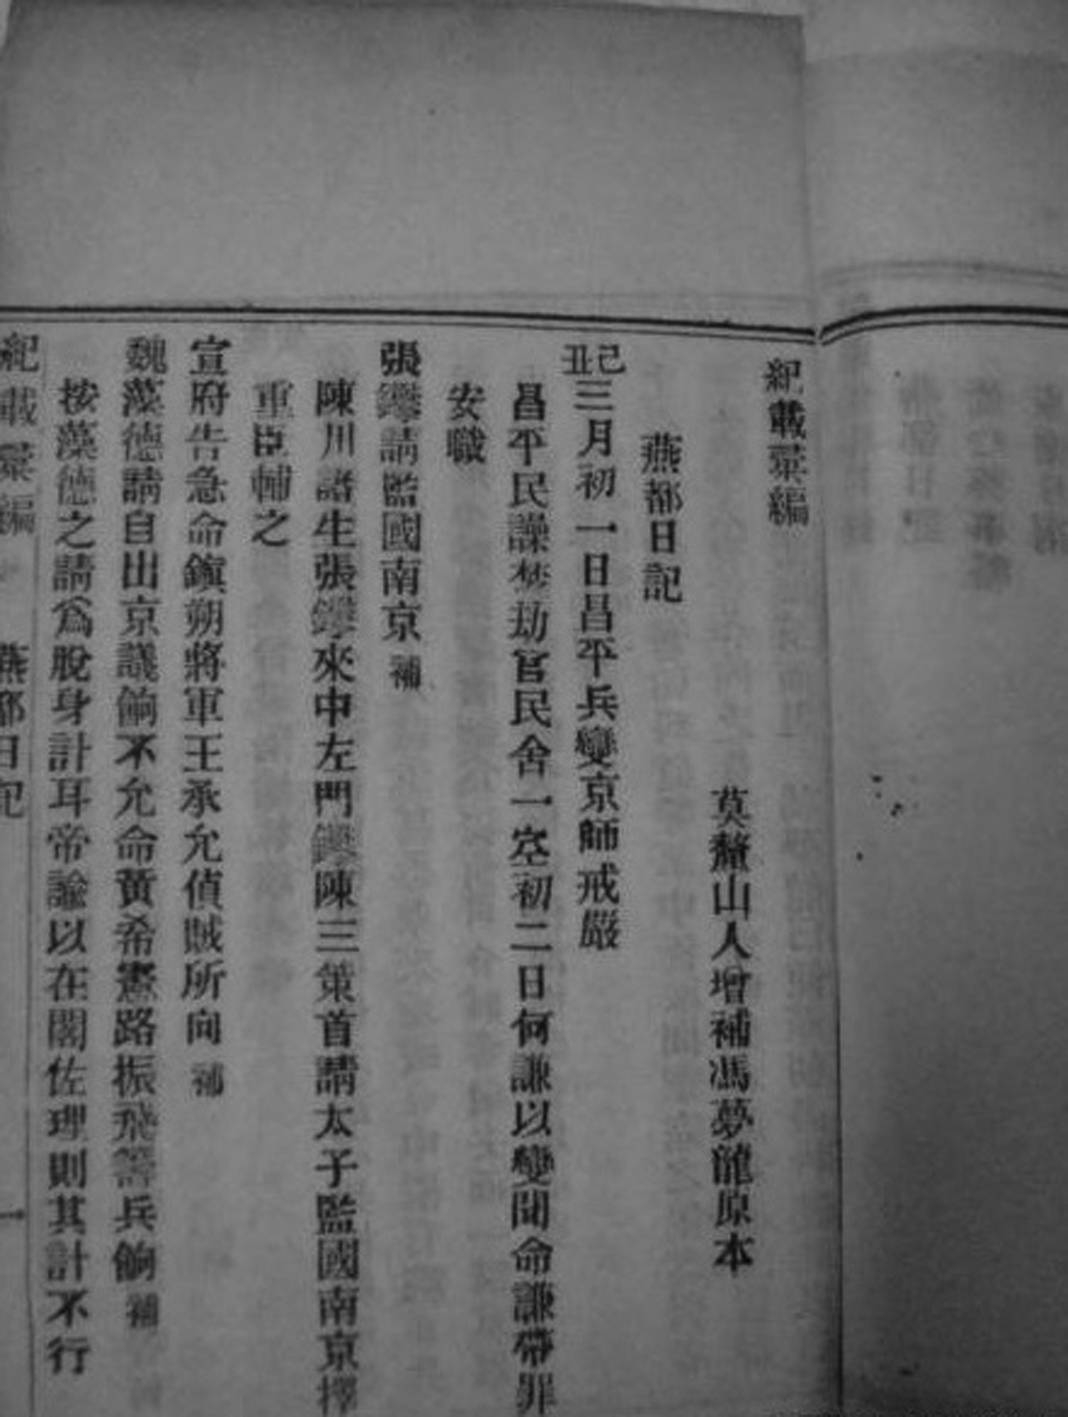 紀載彙編
莫釐山人增補馮夢龍原本
燕都日記
己丑三月初一日昌平兵變京師戒嚴
昌平民譟焚劫官民舍一空初二日何謙以變聞命謙帶罪
安職
張鑻請監國南京補
陳川諸生張鑻來中左門鑻陳三策首請太子監國南京擇
重臣輔之
宣府告急命鎭朔將軍王承允偵賊所向補
魏藻德請自出京議餉不允命黃希憲路振飛籌兵餉補
按藻德之請爲脫身計耳帝諭以在閣佐理則其計不行
紀載彙編 燕都日記 一